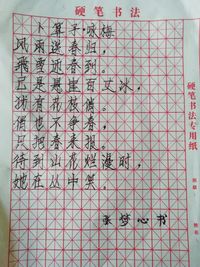 硬笔书法
卜算子·咏梅
风雨送春归，
飞雪迎春到。
已是悬崖百丈冰，
犹有花枝俏。
俏也不争春，
只把春来报。
待到山花烂漫时，
她在丛中笑。
张梦心书
硬笔书法专用纸